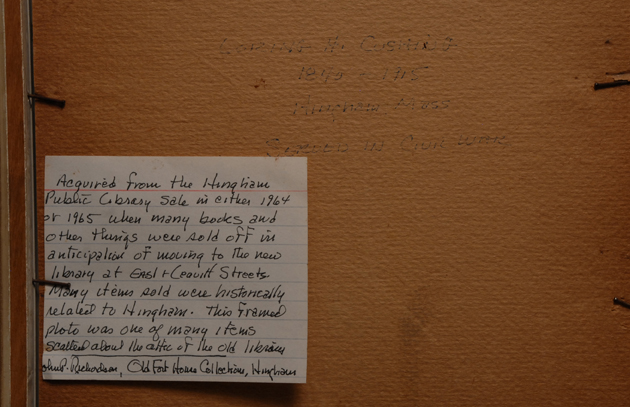 H. Cushing
18 - 1915
Hingham Mass
in Civil War
Acquired from the Hingham
Public Library Sale in either 1964
or 1965 when many books and
other things were sold off in
anticipation of moving to the new
library at EAST + Leavitt Streets
Many items sold were historically
related to Hingham. This framed
photo was one of many items
scattered about the attic of the old library
John P. Richardson, Old Fort Home Collection, Hingham